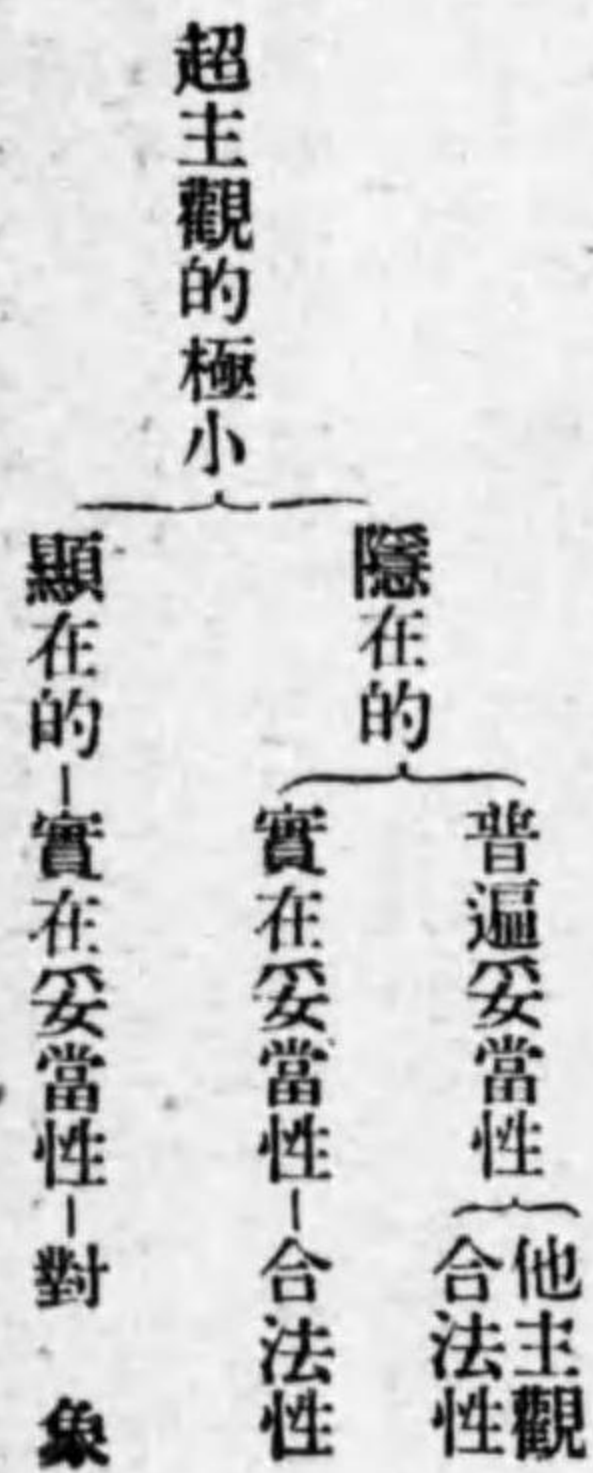 超主觀的極小
隱在的
普遍妥當性
他主觀
合法性
實在妥當性—合法性
顯在的—實在妥當性—對象